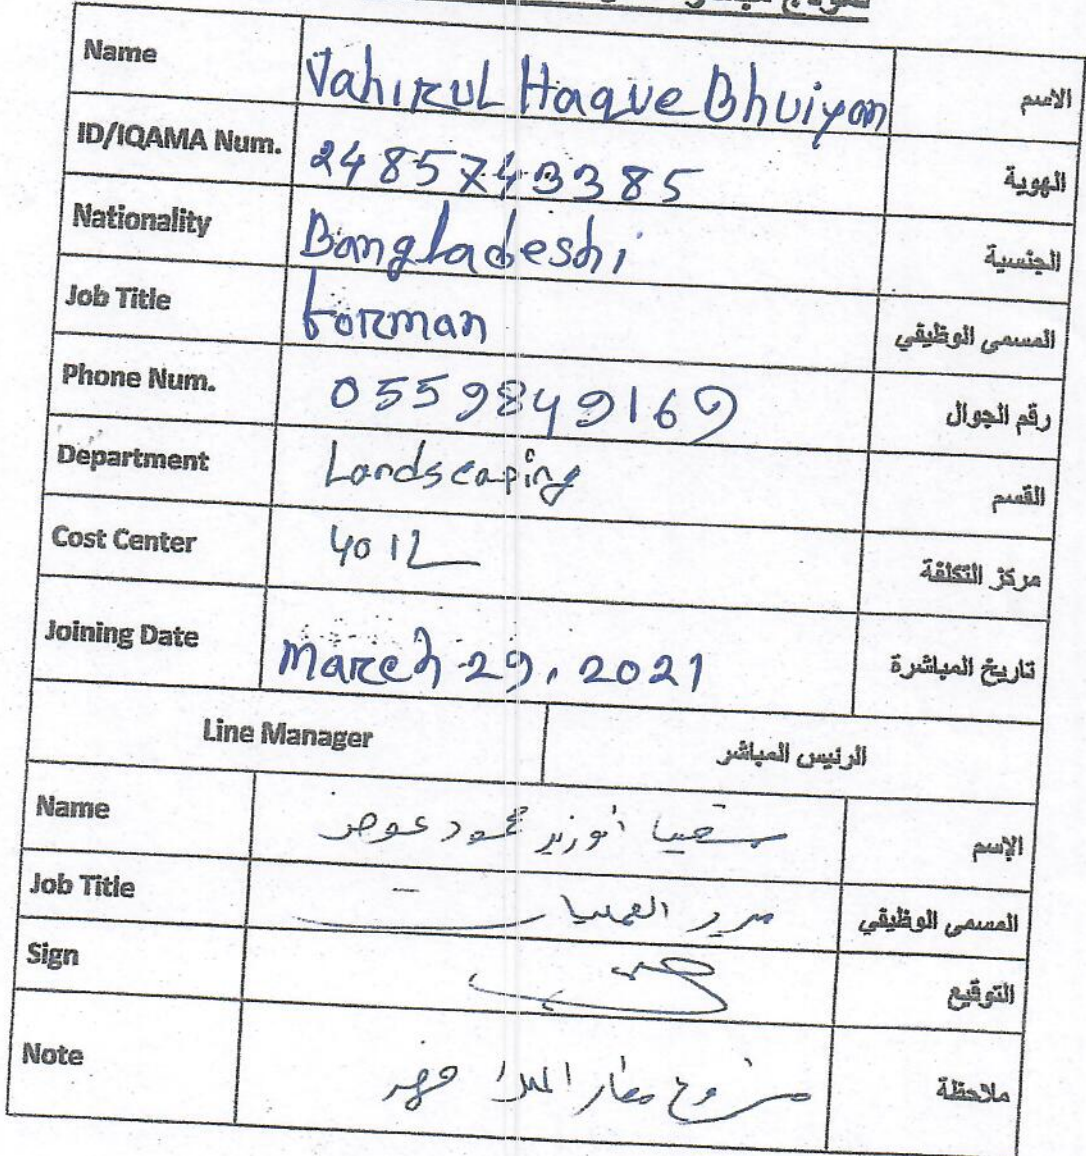 Name Jahirul Haque Bhuiyan الاسم
ID/IQAMA Num. 2485743385 الهوية
Nationality Bangladeshi الجنسية
Job Title forman المسمى الوظيفي
Phone Num. 0559849169 رقم الجوال
Department Landscaping القسم
Cost Center 4012 مركز التكلفة
Joining Date March 29, 2021 تاريخ المباشرة
Line Manager الرئيس المباشر
Name محمود الإسم
Job Title مدير العمليات المسمى الوظيفي
Sign التوقيع
Note مشروع مطار الملك فهد ملاحظة